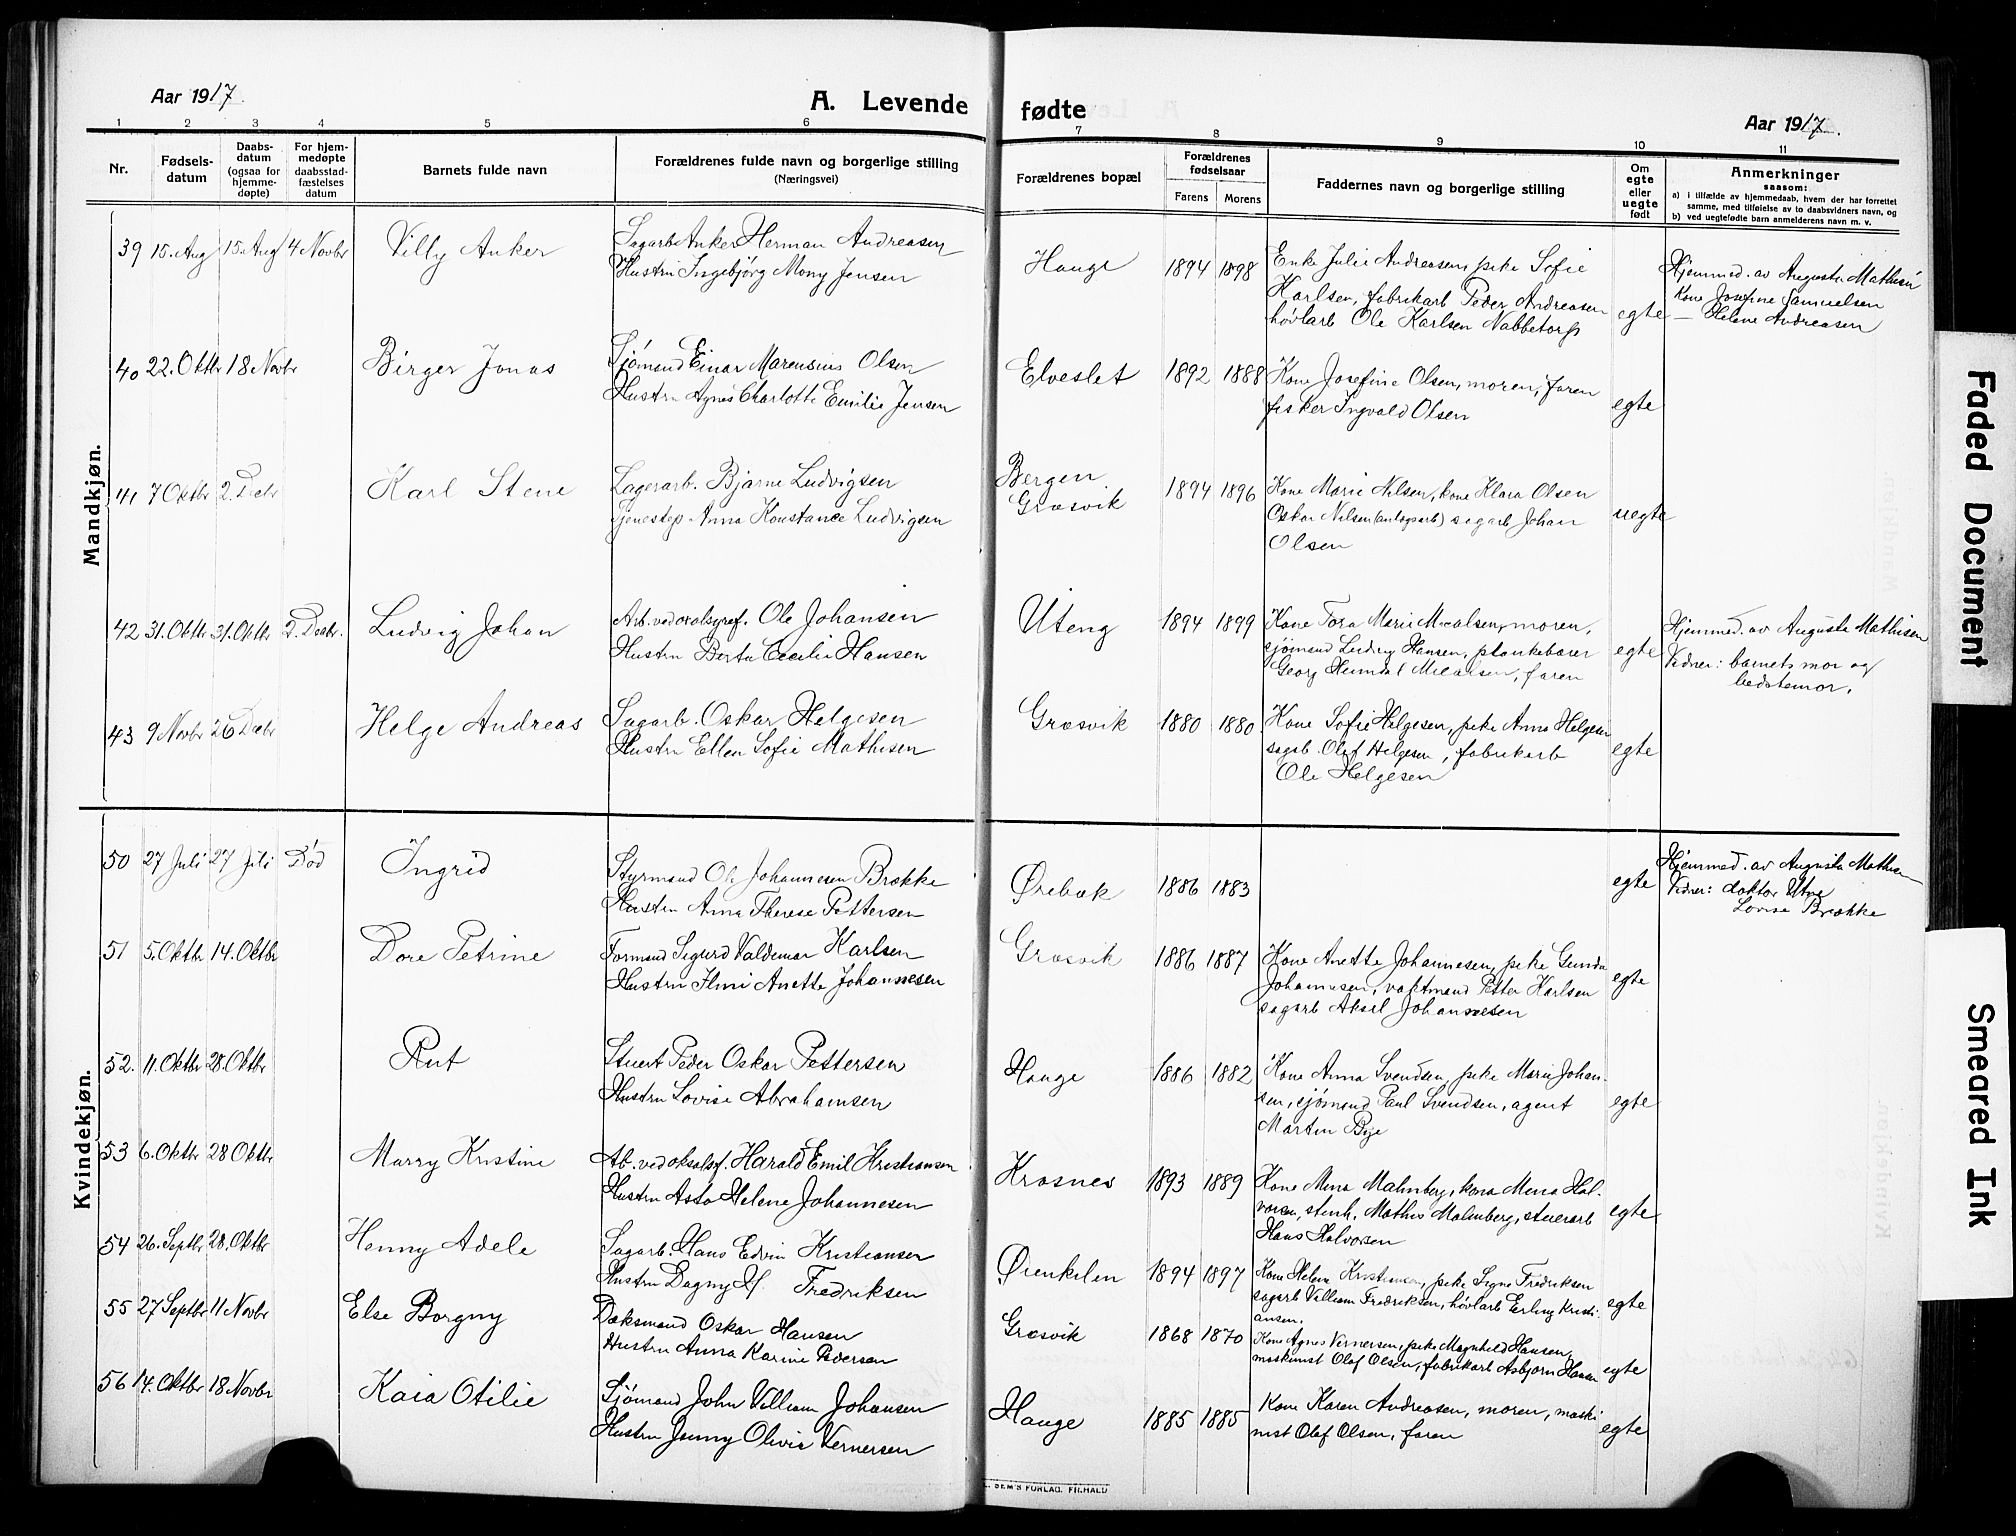 Aar 1917.
A. Levende fødte
Aar 1917.
1 2 3 4 5 6 7 8 9 10 11
Nr.
Fødsels-
datum
Daabs-
datum
(ogsaa for
hjemme-
døpte)
For hjem-
medøpte
daabsstad-
fæstelses
datum
Barnets fulde navn
Forældrenes fulde navn og borgerlige stilling
(Næringsvei)
Forældrenes bopæl
Forældrenes
fødselsaar
Farens Morens
Faddernes navn og borgerlige stilling
Om
egte
eller
uegte
født
Anmerkninger
saasom:
a) i tilfælde av hjemmedaab, hvem der har forrettet
samme, med tilføielse av to daabsvidners navn, og
b) ved uegtefødte barn anmelderens navn m. v.
Mandkjøn.
39 15. Aug 15. Aug 4 Novbr Villy Anker
Sagarb Anker Herman Andreasen
Hustru Ingebjørg Mony Jensen
Hauge 1894 1898
Enke Julie Andreasen, pike Sofie
Karlsen, fabrikarb Peder Andreasen
høvlarb Ole Karlsen Nabbetorp
egte
Hjemmed. av Augusta Mathisen
Kone Josefine Samuelsen
— Helene Andreasen
40 22. Oktbr 18 Novbr Birger Jonas
Sjömand Einar Marensius Olsen
Hustru Agnes Charlotte Emilie Jensen
Elveslet 1892 1888
Kone Josefine Olsen, moren, faren
fisker Ingvald Olsen
egte
41 7 Oktbr 2. Decbr Karl Stene
Lagerarb. Bjarne Ludvigsen
Tjenestep Anna Konstance Ludvigsen
Bergen
Græsvik 1894 1896
Kone Marie Nilsen, kone Klara Olsen
Oskar Nilsen (anlægsarb) sagarb Johan
Olsen
uegte
42 31. Oktbr 31. Oktbr 2. Decbr. Ludvig Johan
Arb. ved oxalsyref. Ole Johansen
Hustru Berta Cecilie Hansen
Uteng 1894 1899
Kone Tora Marie Micalsen, moren,
sjömand Ludvig Hansen, plankebærer
Georg Heimdal Micalsen, faren
egte
Hjemmed. av Augusta Mathisen
Vidner: barnets mor og
bedstemor.
43 9 Novbr 26 Decbr Helge Andreas
Sagarb. Oskar Helgesen
Hustru Ellen Sofie Mathisen
Græsvik 1880 1880
Kone Sofie Helgesen, pike Anna Helgesen
sagarb. Olaf Helgesen, fabrikarb
Ole Helgesen
egte
Kvindekjøn.
50 27 Juli 27 Juli Död Ingrid
Styrmand Ole Johannesen Brække
Hustru Anna Therese Pettersen
Ørebæk 1886 1883
egte
Hjemmed. av Augusta Mathisen
Vidner: doktor Utne
Lovise Brække
51 5. Oktbr 14. Oktbr Dore Petrine
Formand Sigurd Valdemar Karlsen
Hustru Ilmi Anette Johannesen
Græsvik 1886 1887
Kone Anette Johannesen, pike Gunda
Johannesen, vaktmand Petter Karlsen
sagarb Aksel Johannesen
egte
52. 11. Oktbr 28. Oktbr Rut
Stuert Peder Oskar Pettersen
Hustru Lovise Abrahamsen
Hauge 1886 1882
Kone Anna Svendsen, pike Marie Johan-
sen, sjömand Paul Svendsen, agent
Martin Bye
egte
53 6. Oktbr 28 Oktbr Marry Kristine
Ab. ved oksalsf. Harald Emil Kristiansen
Hustru Asta Helene Johannesen
Kråsnes 1893 1889
Kone Mina Malmberg, kona Mina Hal-
vorsen, stenh. Mathis Malmberg, stuerarb
Hans Halvorsen
egte
54 26. Septbr 28. Oktbr Henny Adele
Sagarb. Hans Edvin Kristiansen
Hustru Dagny M. Fredriksen
Ørenkilen 1894 1897
Kone Helene Kristiansen, pike Signe Fredriksen
sagarb Villiam Fredriksen, høvlarb Erling Kristi-
ansen.
egte
55 27 Septbr 11 Novbr Else Borgny
Dæksmand Oskar Hansen
Hustru Anna Karine Pedersen
Græsvik 1868 1870
Kone Agnes Vernersen, pike Magnhild Hansen,
maskinist Olaf Olsen, fabrikarb Asbjørn Hansen
egte
56 14. Oktbr 18 Novbr Kaia Otilie
Sjömand John Villiam Johansen
Hustru Jenny Olivie Vernersen
Hauge 1885 1885
Kone Karen Andreasen, moren, maski
nist Olaf Olsen, faren
egte
SEM'S FORLAG, FR.HALD
Faded Document
Smeared Ink